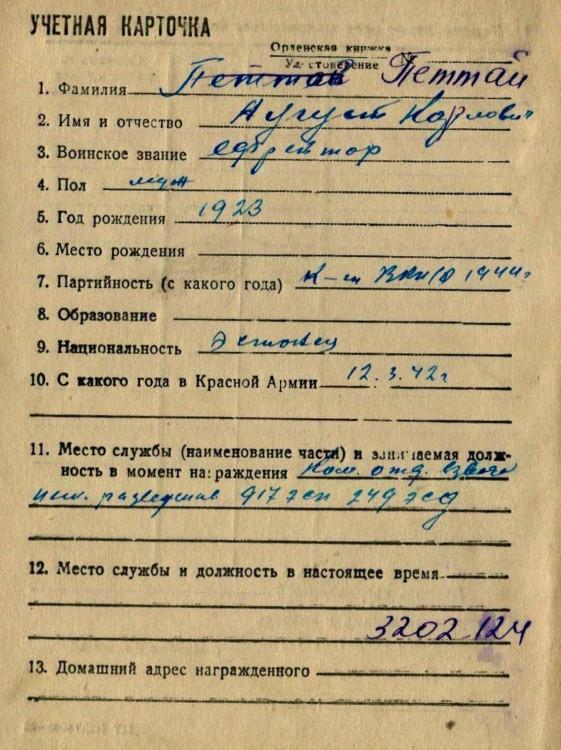 УЧЕТНАЯ КАРТОЧКА
Орденская книжка
Удостоверение №
1. Фамилия Петтай Петтай
2. Имя и отчество Август Карлович
3. Воинское звание ефрейтор
4. Пол муж
5. Год рождения 1923
6. Место рождения
7. Партийность (с какого года) К-т ВКП/б 1944г
8. Образование
9. Национальность Эстонец
10. С какого года в Красной Армии 12.3.42г
11. Место службы (наименование части) и занимаемая долж-
ность в момент награждения Ком. отд. взвода
пеш. разведчик 917 эсп 249 эсд
12. Место службы и должность в настоящее время
3202124
13. Домашний адрес награжденного